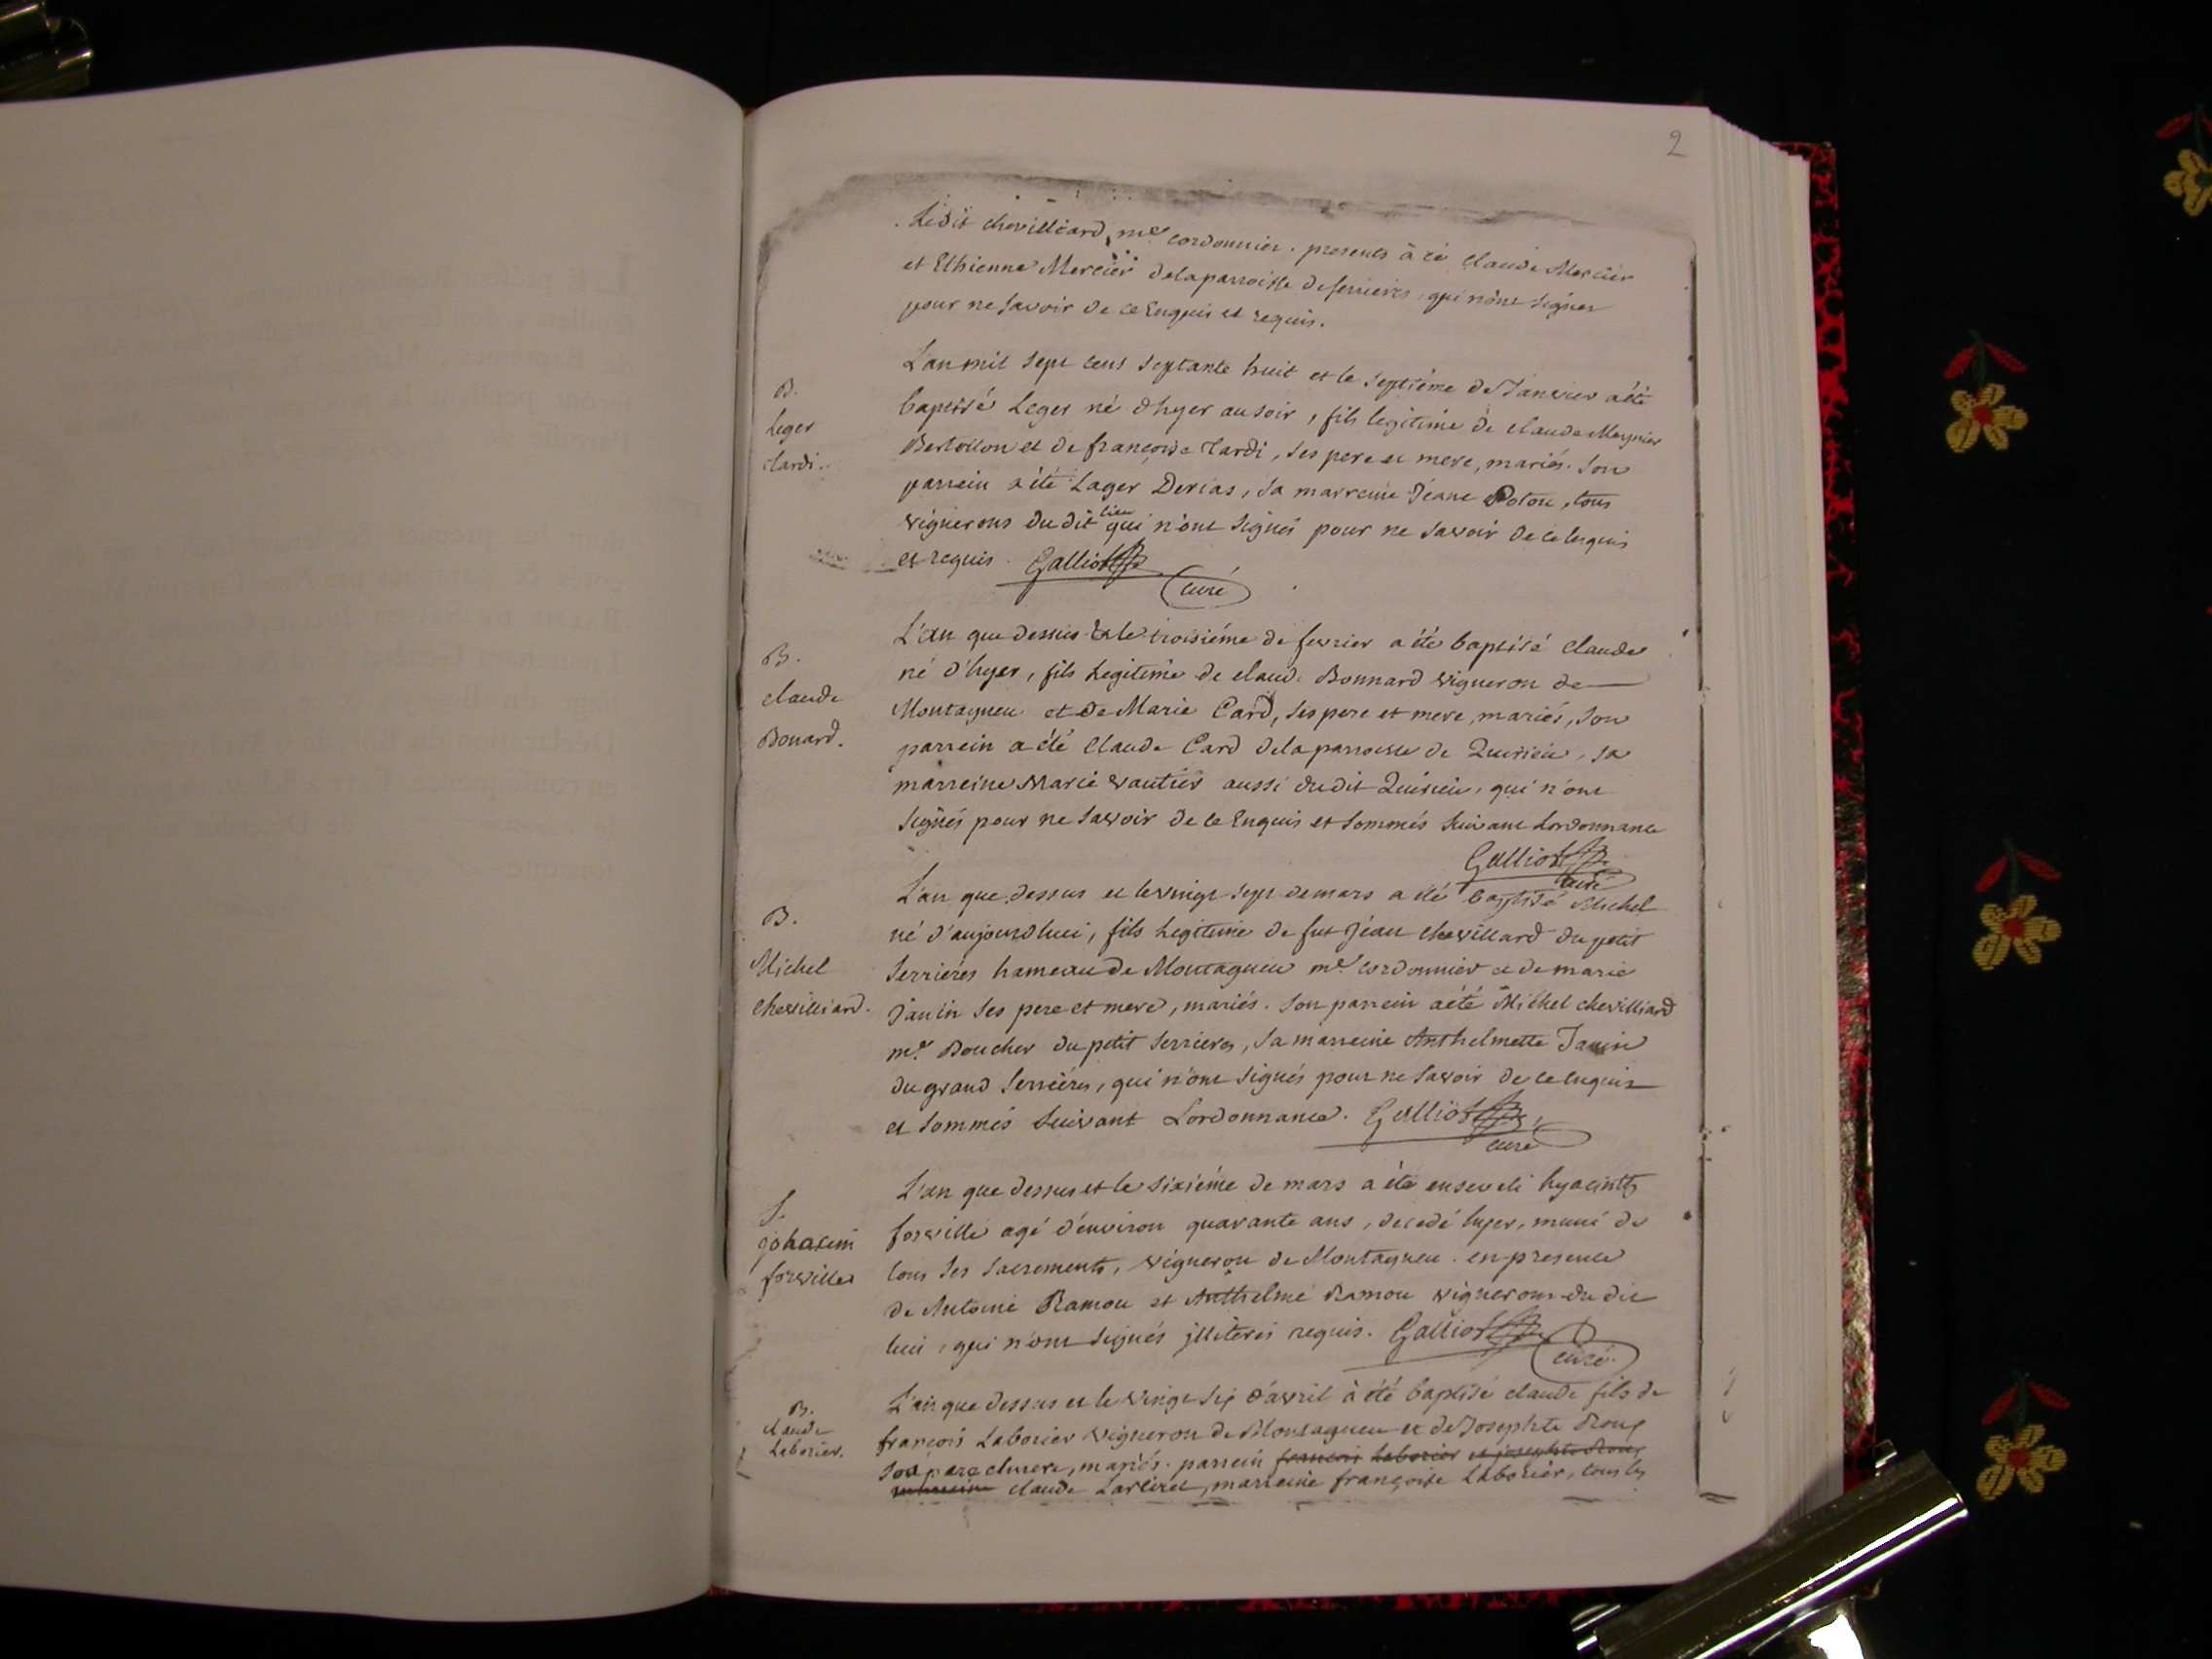 2
Ledit chevilliard, me cordonnier. presents à ce Claude Mercier
et Ethienne Mercier de la parroisse de serrieres, qui n'ont signer
pour ne savoir de ce Enquis et requis.
B.
Leger
tardi.
L'an mil sept cens septante huit et le septiéme de Janvier a été
baptisé Leger né d'hyer au soir, fils legitime de claude Meynier
Bertollon et de françoise Tardi, ses pere et mere, mariés. son
parrein a été Lager Derias, sa marreine Jeane Poton, tous
vignerons du dit lieu qui n'ont signés pour ne savoir de ce Enquis
et requis. Galliot
curé
B.
claude
Bonard.
L'an que dessus et le troisiéme de fevrier a été baptisé Claude
né d'hyer, fils legitime de claud. Bonnard vigneron de
Montagneu et de Marie Card, ses pere et mere, mariés, son
parrein a été Claude Card de la parroisse de Quirieu, sa
marreine Marie vautier aussi du dit Quirieu, qui n'ont
signés pour ne savoir de ce Enquis et sommés suivant Lordonnance
Galliot
curé
B.
Michel
chevilliard.
L'an que dessus et le vingt sept de mars a été baptisé Michel
né d'aujourdhui, fils legitime de fut Jéan chevillard du petit
serriéres hameau de Montagneu me cordonnier et de marie
Janin ses pere et mere, mariés. son parrein a été Michel chevilliard
me Boucher du petit serrieres, sa marreine Anthelmette Janin
du grand serriéres, qui n'ont signés pour ne savoir de ce enquis
et sommés suivant Lordonnance. Galliot
curé
S.
johacin
forville
L'an que dessus et le sixiéme de mars a été enseveli hyacinth
forville agé d'environ quarante ans, decedé hyer, muni de
tous ses sacrements, vigneron de Montagneu. en presence
de Antoine Ramou et Anthelme Ramou vignerons du dit
lieu, qui n'ont signés jlliterés requis. Galliot
curé.
B.
claude
Laborier.
L'an que dessus et le vingt six d'avril à été baptisé claude fils de
françois Laborier vigneron de Montagneu et de Josephte Roux
ses pere et mere, mariés. parrein francois Laborier et josephte Roux
marreine claude Larliret, marreine françoise Laborier, tous les